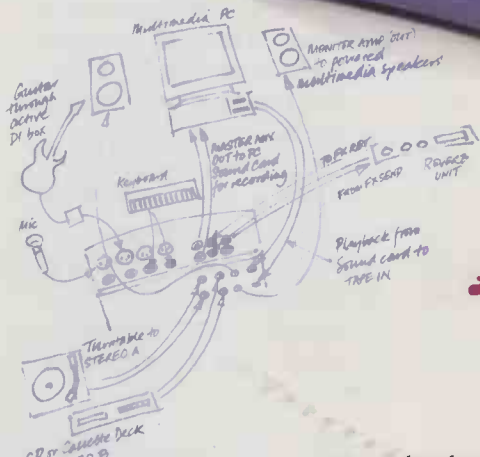 Multimedia PC
MONITOR AMP 'OUT'
to powered
multimedia speakers
Guitar
through
active
DI box
MASTER MIX
OUT to PC
Sound Card
for recording
TO FX RET
FROM FX SEND
REVERB
UNIT
Keyboard
Mic
Playback from
Sound card to
TAPE IN
Turntable to
STEREO A
CD or Cassette Deck